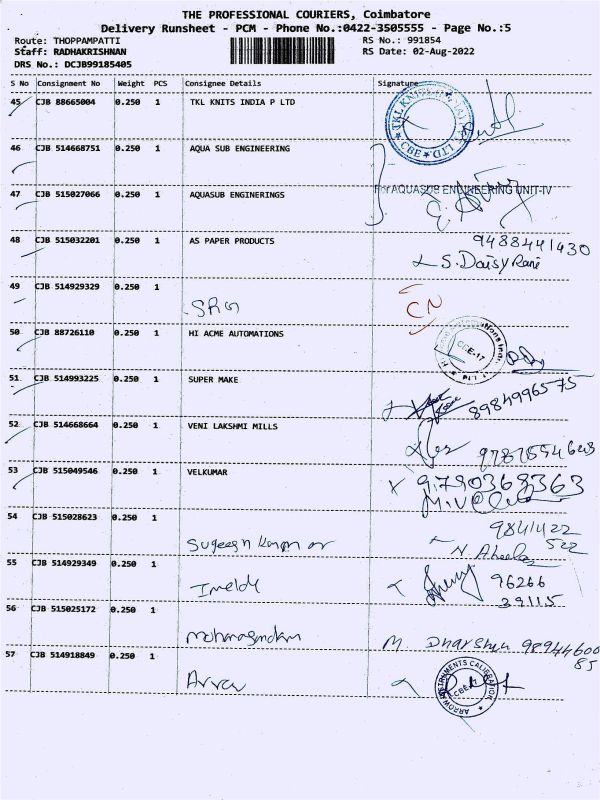 THE PROFESSIONAL COURIERS, Coimbatore
Delivery Runsheet - PCM - Phone No.:0422-3505555 - Page No.:5
Route: THOPPAMPATTI RS No.: 991854
Staff: RADHAKRISHNAN RS Date: 02-Aug-2022
DRS No.: DCJB99185405
S No Consignment No Weight PCS Consignee Details Signature
45 CJB 88665004 0.250 1 TKL KNITS INDIA P LTD
46 CJB 514668751 0.250 1 AQUA SUB ENGINEERING
47 CJB 515027066 0.250 1 AQUASUB ENGINERINGS For AQUASUB ENGINEERING UNIT-IV
48 CJB 515032201 0.250 1 AS PAPER PRODUCTS 9488441430
S. Daisy Rani
49 CJB 514929329 0.250 1 CN
50 CJB 88726110 0.250 1 HI ACME AUTOMATIONS
51 CJB 514993225 0.250 1 SUPER MAKE 8984996575
52 CJB 514668664 0.250 1 VENI LAKSHMI MILLS
53 CJB 515049546 0.250 1 VELKUMAR 9790368363
54 CJB 515028623 0.250 1 9841422
522
55 CJB 514929349 0.250 1 Imelda 96266
39115
56 CJB 515025172 0.250 1
M 9894460085
57 CJB 514918849 0.250 1 Arrow
ARROW INSTRUMENTS CALIBRATION